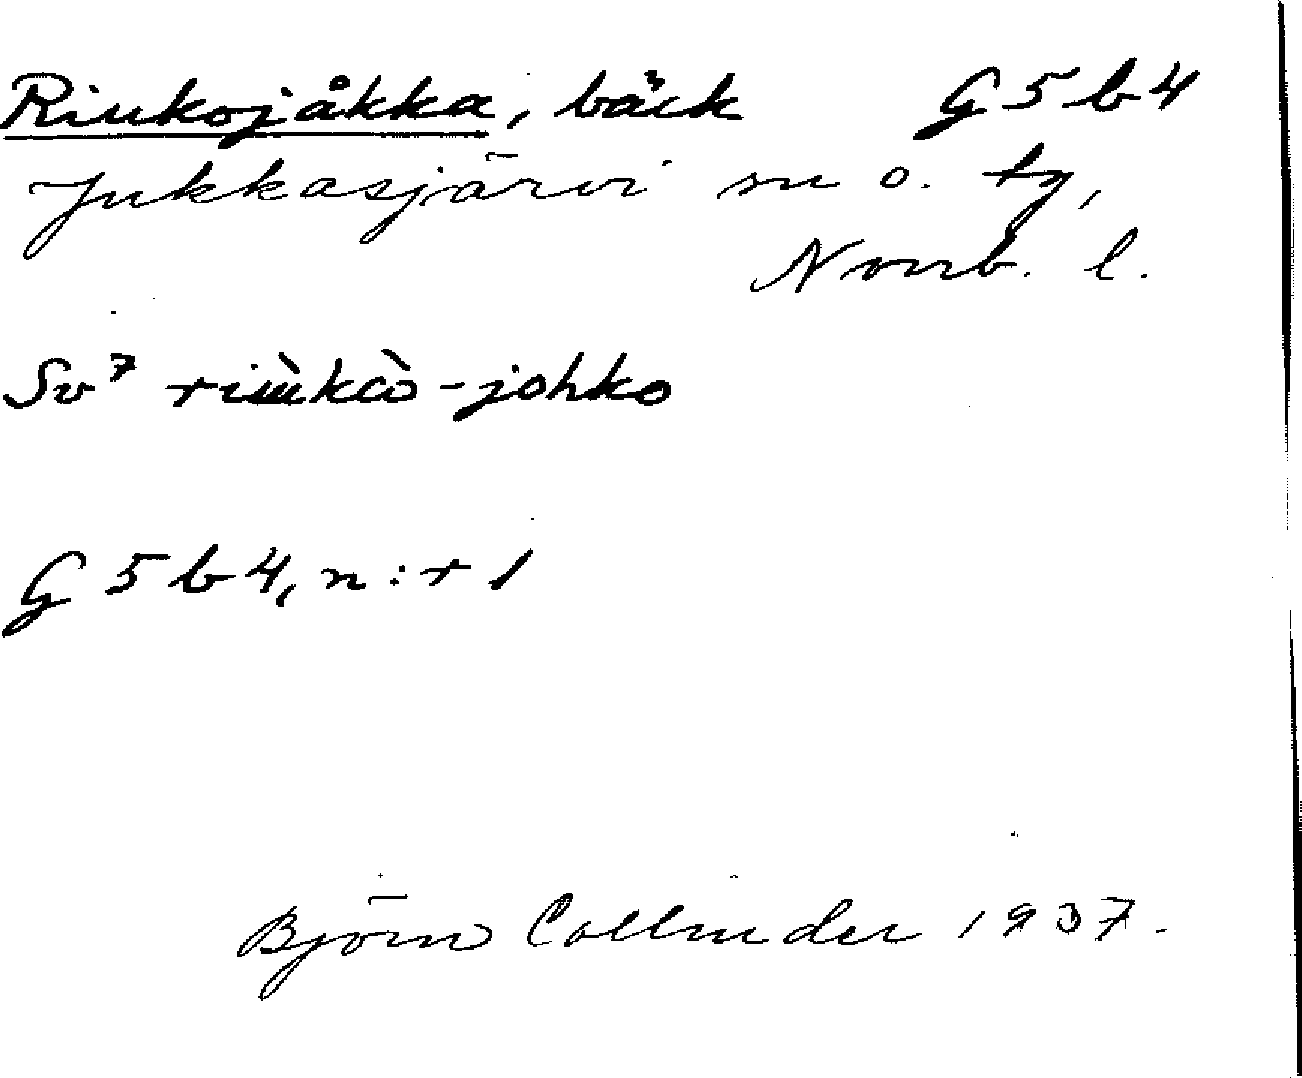 Riukojåkka, bäck G5b4
Jukkasjärvi sn o. tg,
Norrb. l.
Sv⁷ -johko
G5b4, n:r 1
Björn Collinder 1937.